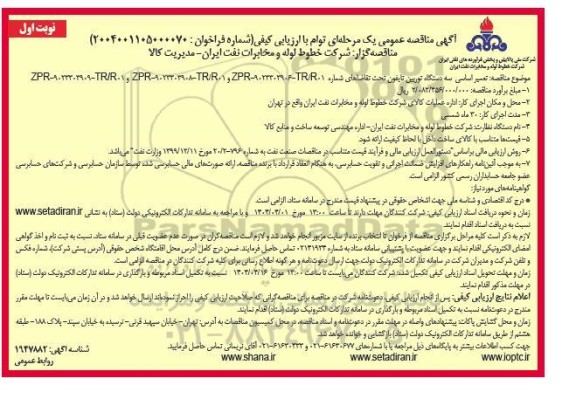 نوبت اول
آگهی مناقصه عمومی یک مرحله‌ای توام با ارزیابی کیفی(شماره فراخوان : ۲۰۰۴۰۰۱۱۰۵۰۰۰۰۷۰)
مناقصه‌گزار: شرکت خطوط لوله و مخابرات نفت ایران- مدیریت کالا
شرکت ملی پالایش و پخش فرآورده های نفتی ایران
شرکت خطوط لوله و مخابرات نفت ایران
موضوع مناقصه: تعمیر اساسی سه دستگاه توربین تایفون تحت تقاضاهای شماره ZPR-۹۰۲۳۳۰۳۹۰۶-TR/R۰۱ و ZPR-۹۰۲۳۳۰۳۹۰۸-TR/R۰۱ و ZPR-۹۰۲۳۳۰۳۹۰۹-TR/R۰۱
۱- مبلغ برآورد مناقصه: ۲/۰۸۲/۳۵۶/۰۰۰/۰۰۰ ریال
۲- محل و مکان اجرای کار: اداره عملیات کالای شرکت خطوط لوله و مخابرات نفت ایران واقع در تهران
۳- مدت اجرای کار: ۳۰ ماه شمسی
۴- نام دستگاه نظارت: شرکت خطوط لوله و مخابرات نفت ایران- اداره مهندسی توسعه ساخت و منابع کالا
۵- قیمت‌ها متناسب با کالای ساخت داخل با لحاظ کیفیت ارائه شود.
۶- روش ارزیابی مالی براساس "دستورالعمل ارزیابی مالی و فرآیند قیمت متناسب در مناقصات صنعت نفت به شماره ۷۹۶-۲۰/۲ مورخ ۱۳۹۹/۱۲/۱۱ وزارت نفت" می‌باشد.
۷- به موجب آئین‌نامه راهکارهای افزایش ضمانت اجرائی و تقویت حسابرسی، به هنگام انعقاد قرارداد با برنده مناقصه، ارائه صورت‌های مالی حسابرسی شده توسط سازمان حسابرسی و شرکت‌های حسابرسی
عضو جامعه حسابداران رسمی کشور الزامی است.
گواهینامه‌های مورد نیاز:
● درج کد اقتصادی و شناسه ملی جهت اشخاص حقوقی در پیشنهاد قیمت مندرج در سامانه ستاد الزامی است.
زمان و نحوه دریافت اسناد ارزیابی کیفی: شرکت کنندگان مهلت دارند تا ساعت ۱۳:۰۰ مورخ ۱۴۰۴/۰۴/۰۱ و با مراجعه به سامانه تدارکات الکترونیکی دولت (ستاد) به نشانی www.setadiran.ir
نسبت به دریافت اسناد اقدام نمایند.
لازم به ذکر است کلیه مراحل برگزاری مناقصه از فراخوان تا انتخاب برنده از سایت مزبور انجام خواهد شد و لازم است مناقصه‌گران در صورت عدم عضویت قبلی در سامانه ستاد نسبت به ثبت نام و اخذ گواهی
امضای الکترونیکی اقدام نمایند و جهت عضویت با پشتیبانی سامانه ستاد به شماره ۰۲۱۴۱۹۳۴ تماس حاصل فرمایند. ضمن درج کامل آدرس محل اقامتگاه شخص حقوقی (آدرس پستی شرکت)، شماره فکس
و تلفن شرکت و مدیران شرکت در سامانه تدارکات الکترونیک دولت، جهت ارسال دعوتنامه و هر گونه اطلاع رسانی برای کلیه شرکت کنندگان در مناقصه الزامی است.
زمان و مهلت تحویل اسناد ارزیابی کیفی تکمیل شده: شرکت کنندگان می‌بایست تا ساعت ۱۳:۰۰ مورخ ۱۴۰۴/۰۴/۱۶ نسبت به تکمیل اسناد مربوطه و بارگذاری در سامانه تدارکات الکترونیک دولت (ستاد)
در مهلت مذکور اقدام نمایند.
اعلام نتایج ارزیابی کیفی: پس از انجام ارزیابی کیفی، دعوتنامه شرکت در مناقصه برای مناقصه‌گرانی که صلاحیت ارزیابی کیفی را احراز نموده‌اند ارسال خواهد شد و در آن زمان می‌بایست تا مهلت مقرر
مندرج در دعوتنامه نسبت به تکمیل اسناد مربوطه و بارگذاری در سامانه تدارکات الکترونیک دولت (ستاد) اقدام نمایند.
زمان و محل گشایش پاکات: پیشنهادهای واصله در مهلت مقرر در دعوتنامه و اسناد مناقصه، در محل کمیسیون مناقصات به آدرس: تهران- خیابان سپهبد قرنی- نرسیده به خیابان سپند- پلاک ۱۸۸- طبقه
هشتم از طریق سامانه تدارکات الکترونیک دولت (ستاد) بازگشایی و خوانده خواهد شد.
جهت کسب اطلاعات بیشتر به پایگاه‌های ذیل مراجعه یا با شماره‌های ۶۱۶۳۰۶۷۷-۰۲۱ و ۶۱۶۳۰۴۳۳-۰۲۱ آقای نریمانی تماس حاصل فرمایید.
www.ioptc.ir www.setadiran.ir www.shana.ir
شناسه آگهی: ۱۹۴۷۸۸۲
روابط عمومی